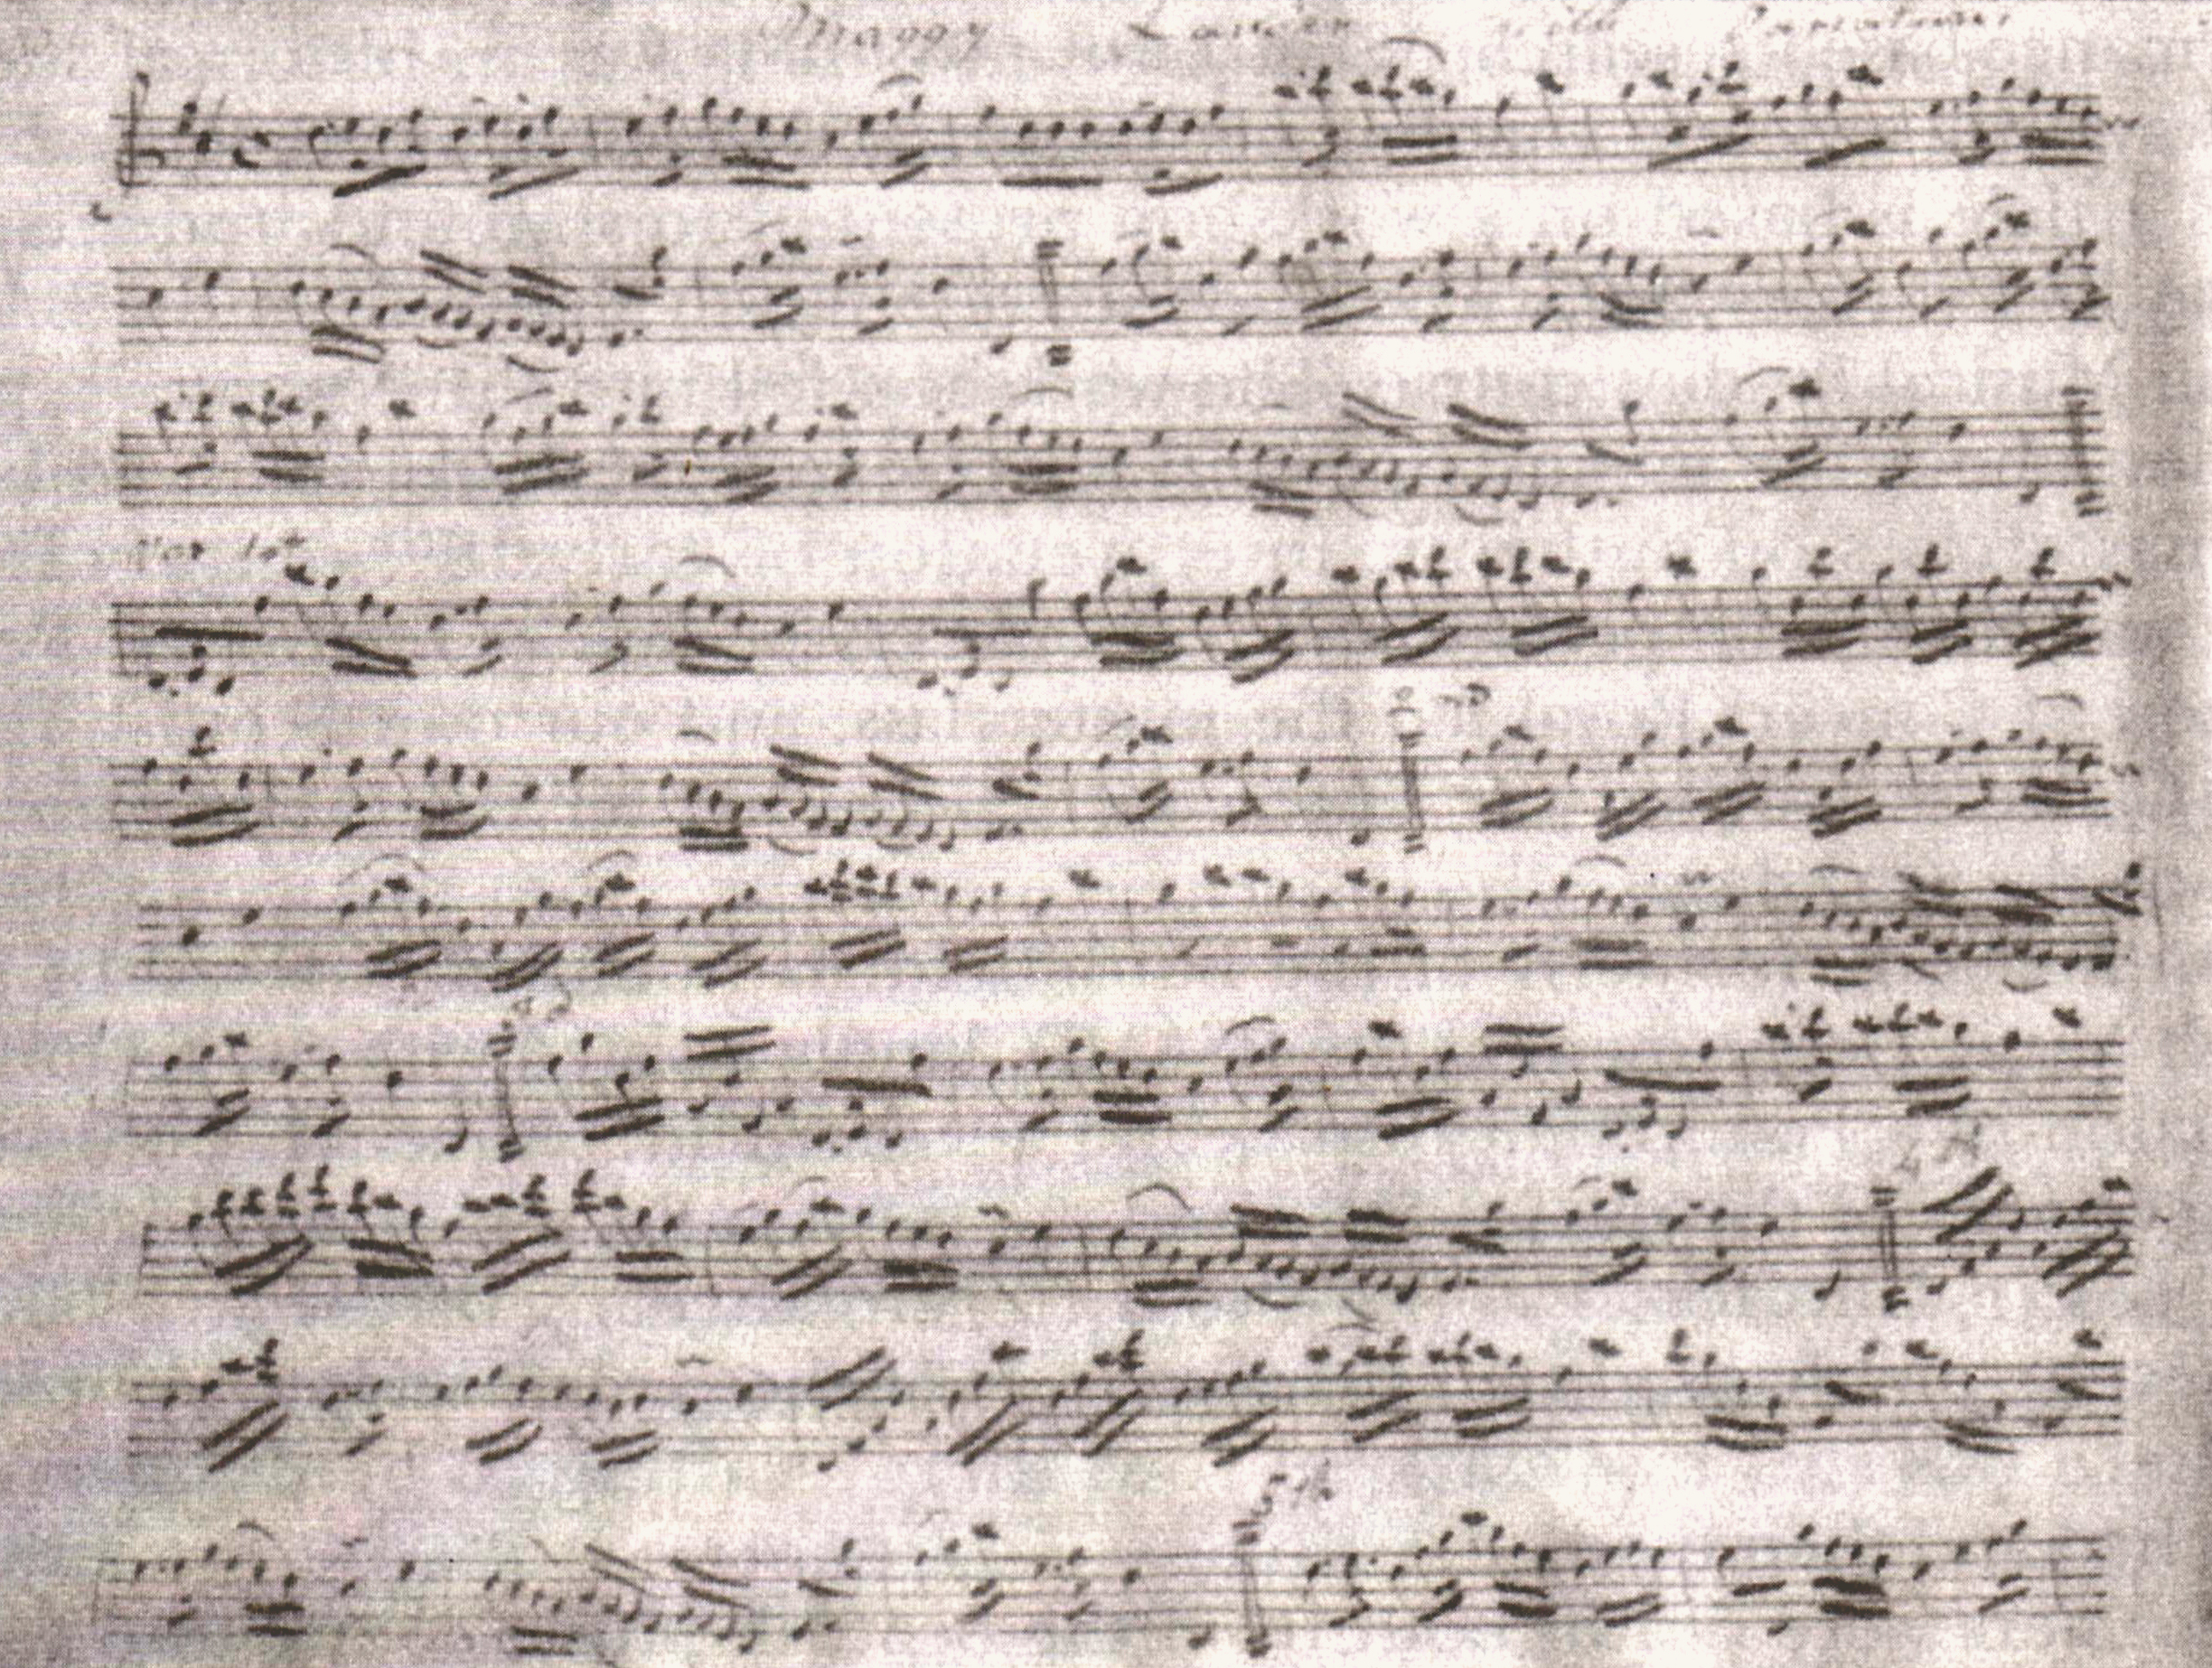 Maggy Lauder with Variations
Var 1st
2nd
3d
4th
5th